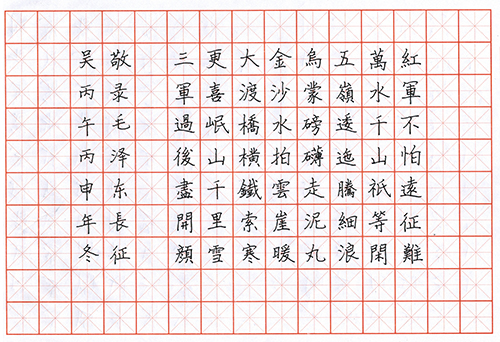 紅軍不怕遠征難
萬水千山祇等閑
五嶺逶迤騰細浪
烏蒙磅礴走泥丸
金沙水拍雲崖暖
大渡橋橫鐵索寒
更喜岷山千里雪
三軍過後盡開顔
敬录毛泽东長征
吴丙午丙申年冬